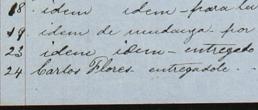 18 idem idem para la
19 idem de mudanza por
23 idem idem entregado
24 Carlos Flores entregadole